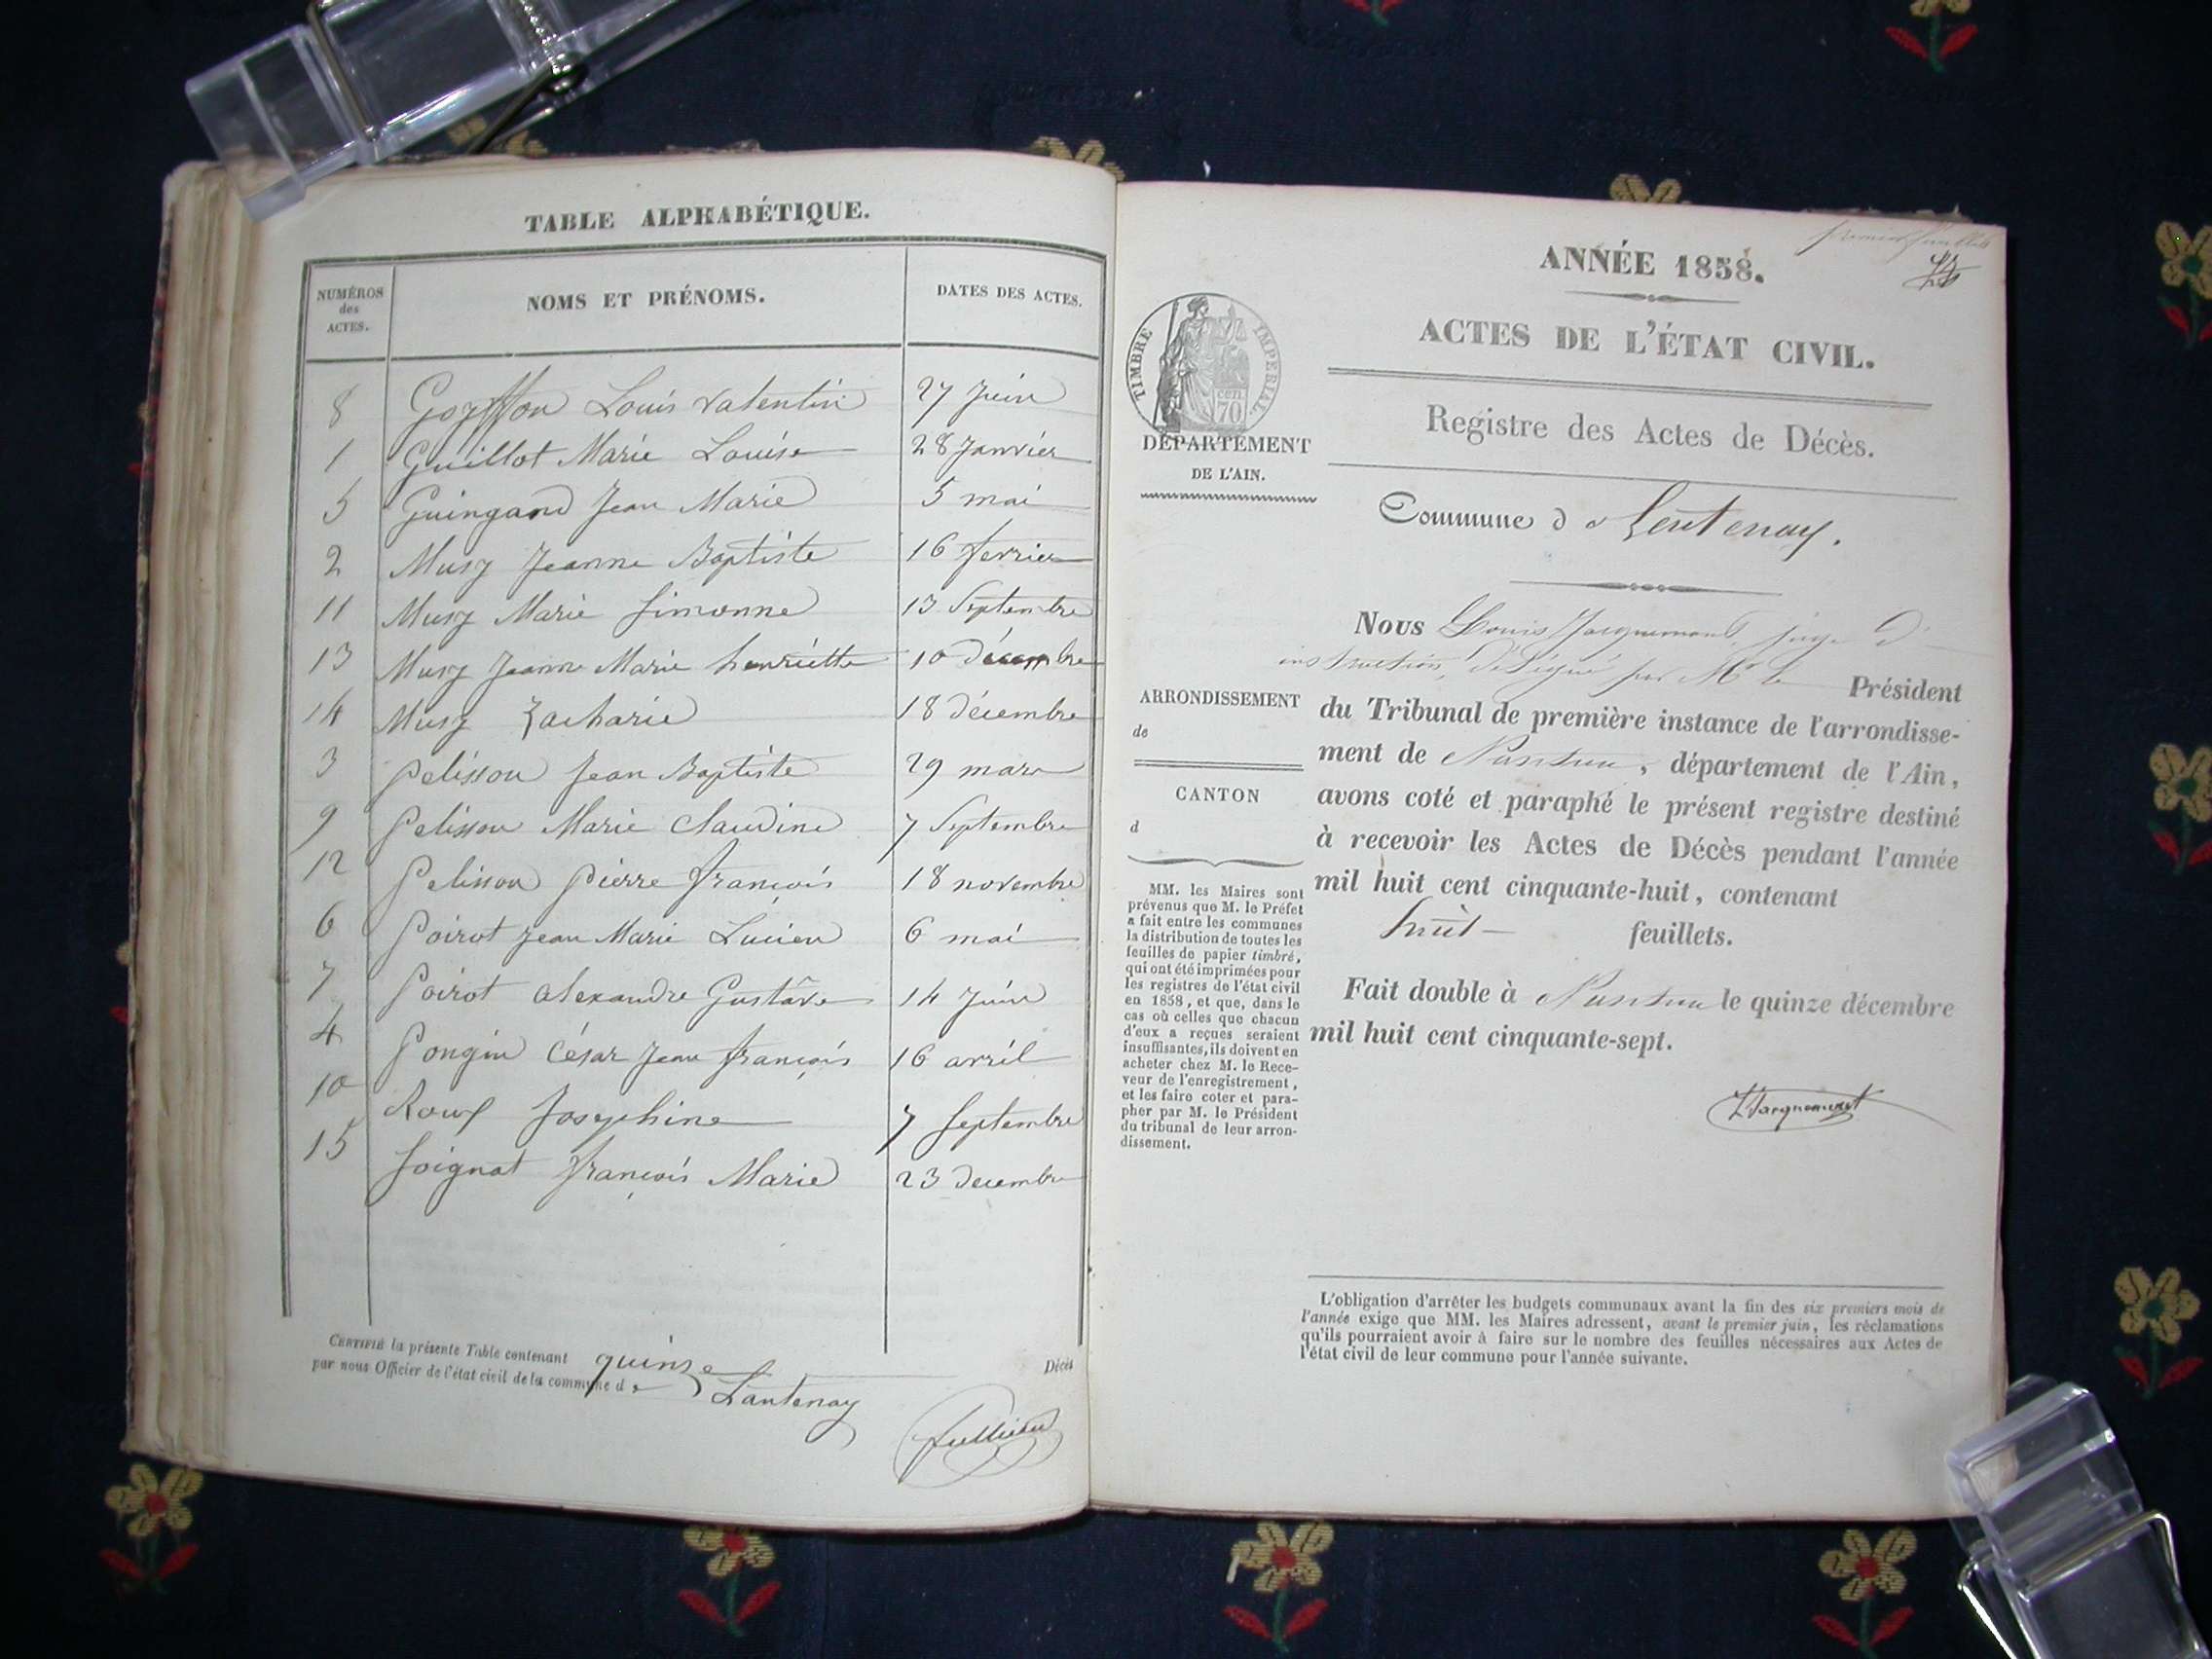 TABLE ALPHABÉTIQUE.
NUMÉROS des ACTES. NOMS ET PRÉNOMS. DATES DES ACTES.
8 Goyffon Louis Valentin 27 Juin
1 Guillot Marie Louise 28 Janvier
5 Guingand Jean Marie 5 mai
2 Musy Jeanne Baptiste 16 fevrier
11 Musy Marie Simonne 13 Septembre
13 Musy Jeanne Marie henriette 10 décembre
14 Musy Zacharie 18 décembre
3 Pelisson Jean Baptiste 29 mars
9 Pelisson Marie Claudine 7 Septembre
12 Pelisson Pierre François 18 novembre
6 Poirot Jean Marie Lucien 6 mai
7 Poirot Alexandre Gustave 14 Juin
4 Pongin César Jean François 16 avril
10 Roux Josephine 7 Septembre
15 Soignat François Marie 23 decembre
CERTIFIÉ la présente Table contenant quinze Décès
par nous Officier de l'état civil de la commune de Lantenay
premier feuillet
ANNÉE 1858.
ACTES DE L'ÉTAT CIVIL.
Registre des Actes de Décès.
TIMBRE IMPERIAL
cen. 70
DÉPARTEMENT
DE L'AIN.
Commune de Lentenay.
Nous Louis Jacquemont, juge d'
instruction, délégué par Mr le Président
du Tribunal de première instance de l'arrondisse-
ment de Nantua, département de l'Ain,
avons coté et paraphé le présent registre destiné
à recevoir les Actes de Décès pendant l'année
mil huit cent cinquante-huit, contenant
huit feuillets.
Fait double à Nantua le quinze décembre
mil huit cent cinquante-sept.
LJacquemont
ARRONDISSEMENT
de
CANTON
d
MM. les Maires sont
prévenus que M. le Préfet
a fait entre les communes
la distribution de toutes les
feuilles de papier timbré,
qui ont été imprimées pour
les registres de l'état civil
en 1858, et que, dans le
cas où celles que chacun
d'eux a reçues seraient
insuffisantes, ils doivent en
acheter chez M. le Rece-
veur de l'enregistrement,
et les faire coter et para-
pher par M. le Président
du tribunal de leur arron-
dissement.
L'obligation d'arrêter les budgets communaux avant la fin des six premiers mois de
l'année exige que MM. les Maires adressent, avant le premier juin, les réclamations
qu'ils pourraient avoir à faire sur le nombre des feuilles nécessaires aux Actes de
l'état civil de leur commune pour l'année suivante.